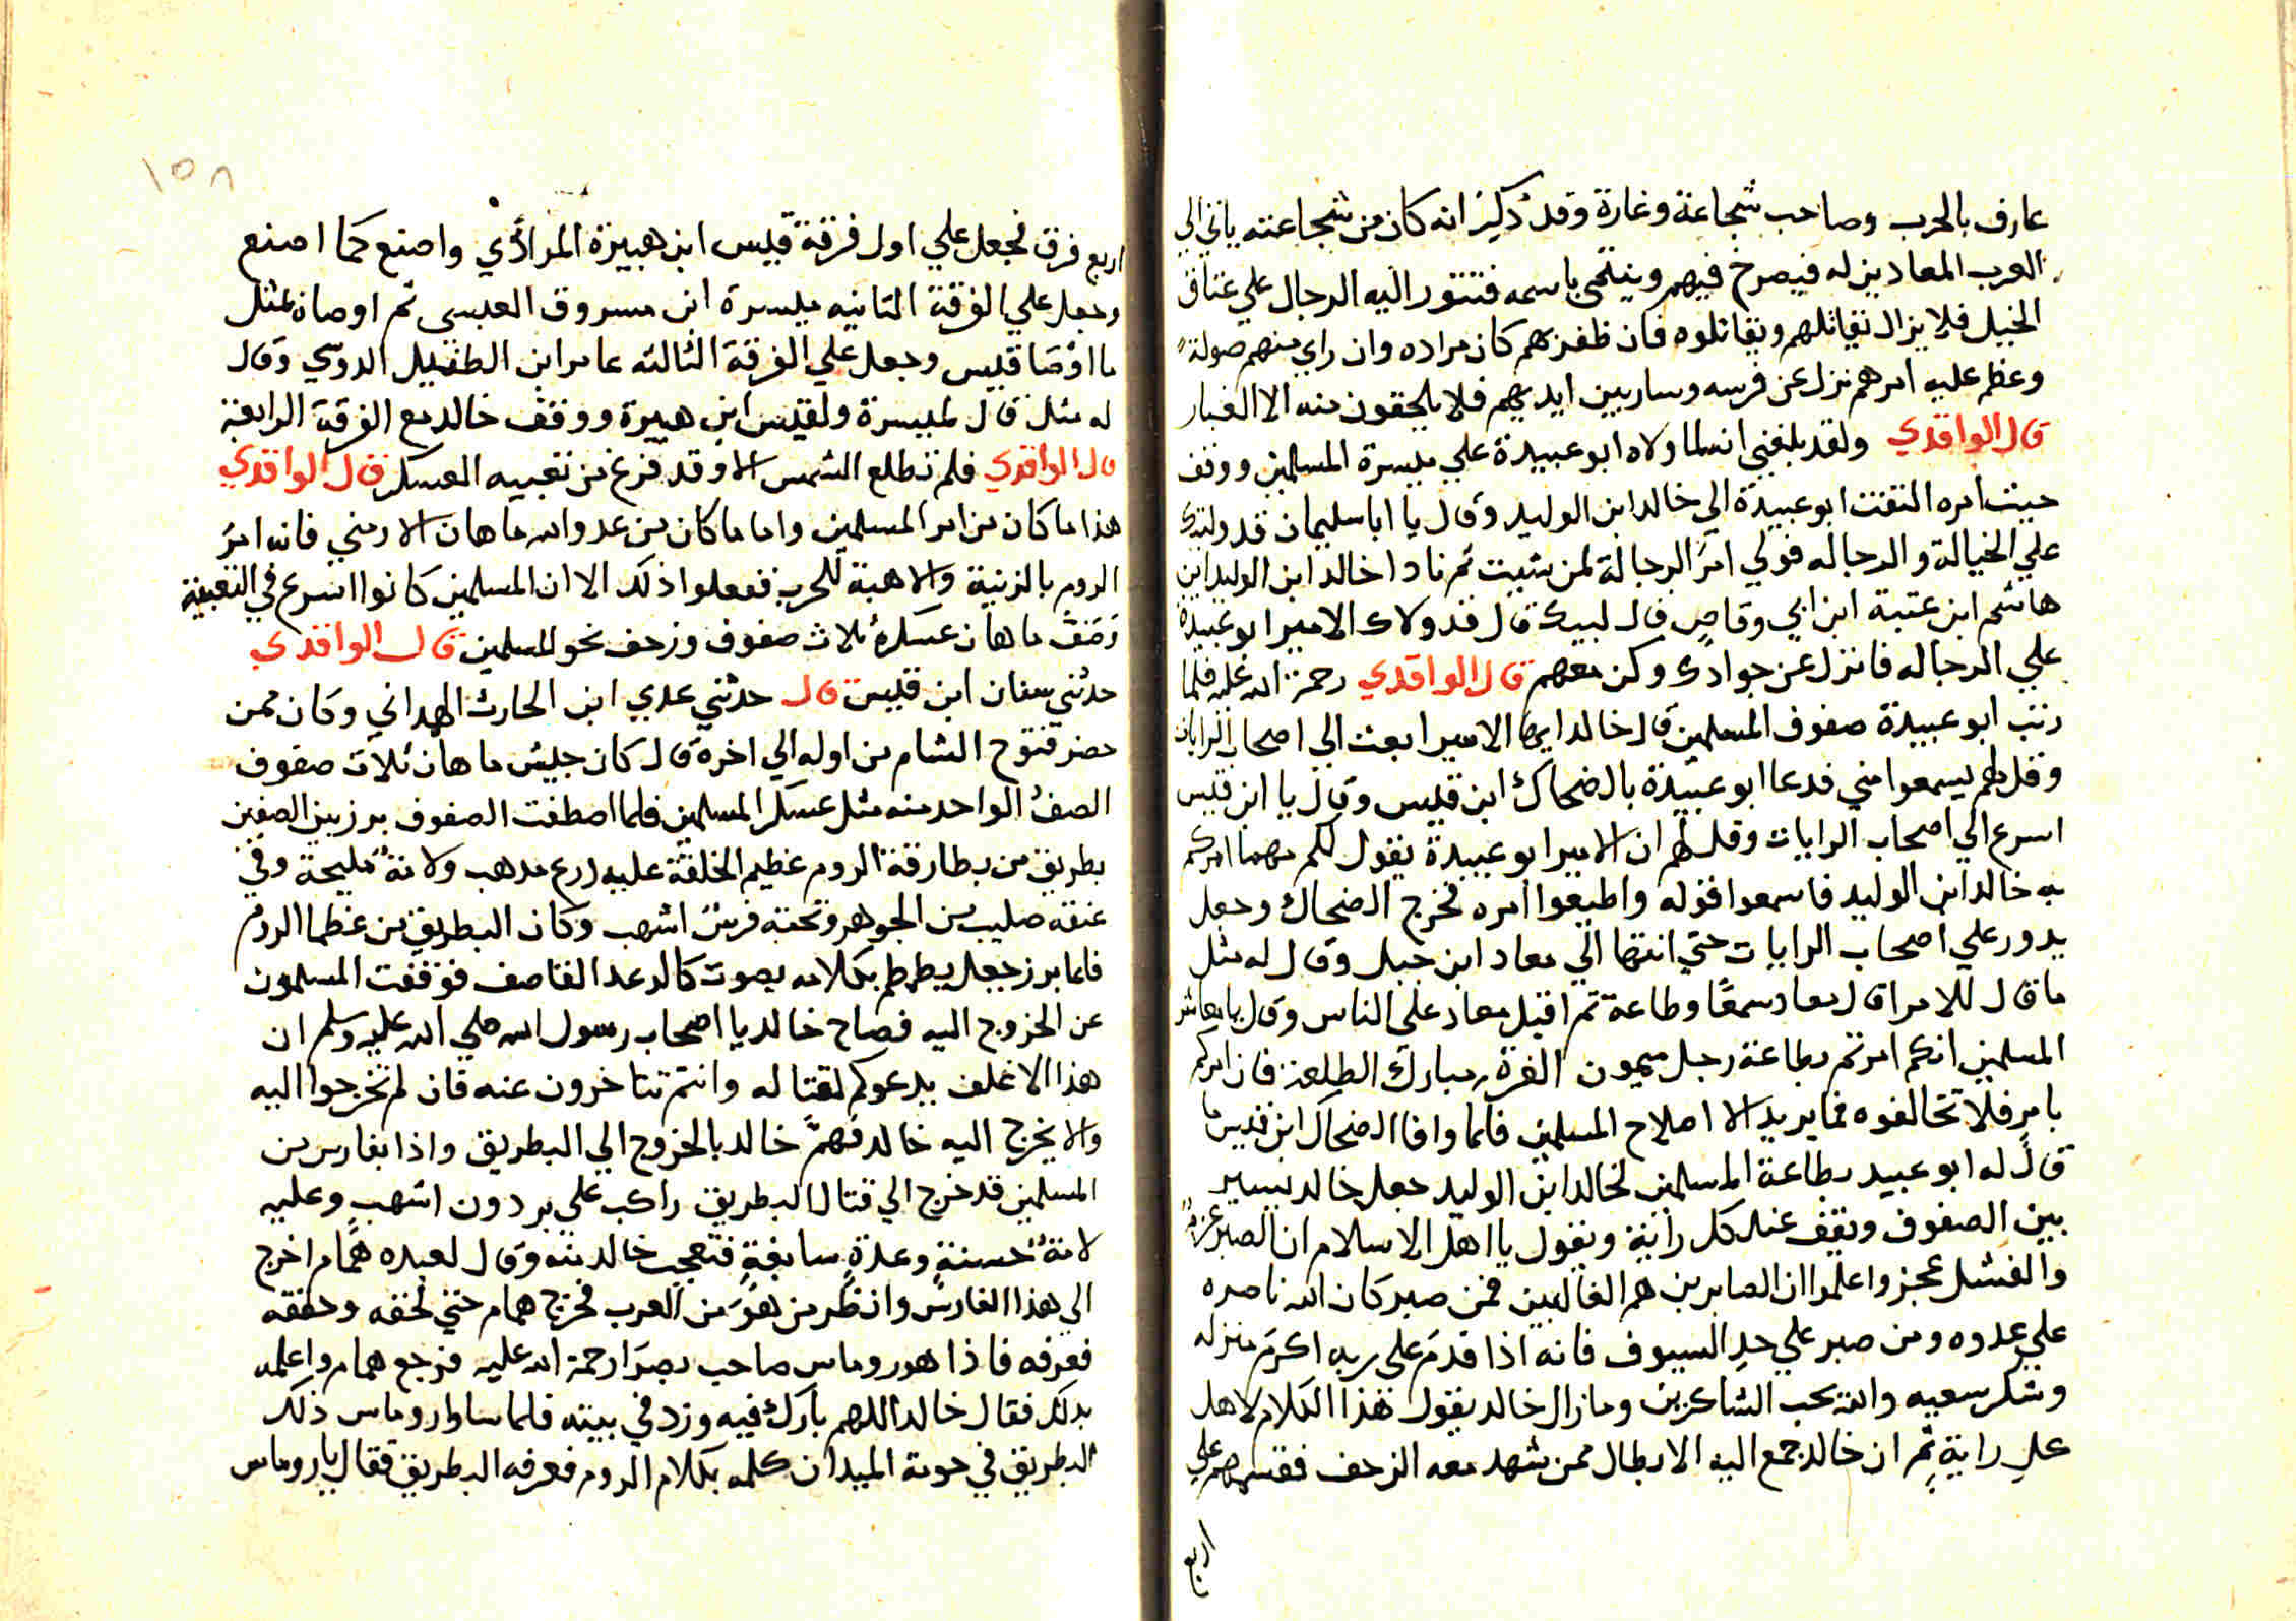 عارف بالحرب وصاحب شجاعة وغارة وقد ذكر انه كان من شجاعته ياتي الي
العرب المعادين له فيصرخ فيهم وينتمي باسمه فتثور اليه الرجال علي عتاق
الخيل فلا يزال يقاتلهم ويقاتلوه فان ظفر بهم كان مراده وان راي منهم صولة
وعظم عليه امرهم نزل عن فرسه وسار بين ايديهم فلا يلحقون منه الا الغبار
قال الواقدي ولقد بلغني انه لما ولاه ابو عبيدة علي ميسرة المسلمين ووقف
حيث امره التفت ابو عبيدة الي خالد ابن الوليد وقال يا ابا سليمان قد وليتك
علي الخيالة والرجاله فولي امر الرجالة لمن شيت ثم نادا خالد ابن الوليد اين
هاشم ابن عتبة ابن ابي وقاص قال لبيك قال قد ولاك الامير ابو عبيدة
علي الرجاله فانزل عن جوادك وكن معهم قال الواقدي رحمة الله عليه فلما
رتب ابو عبيدة صفوف المسلمين قال خالد ايها الامير ابعث الي اصحاب الرايات
وقل لهم يسمعوا مني فدعا ابو عبيدة بالضحاك ابن قيس وقال يا ابن قيس
اسرع الي اصحاب الرايات وقل لهم ان الامير ابو عبيدة يقول لكم مهما امركم
به خالد ابن الوليد فاسمعوا قوله واطيعوا امره فخرج الضحاك وجعل
يدور علي اصحاب الرايات حتي انتها الي معاد ابن جبل وقال له مثل
ما قال للامرا قال معاد سمعًا وطاعة ثم اقبل معاد على الناس وقال يا معاشر
المسلمين انكم امرتم بطاعة رجل ميمون الغرة مبارك الطلعة فان امركم
بامرٍ فلا تخالفوه فما يريد الا اصلاح المسلمين فلما وافا الضحاك ابن قيس ما
قال له ابو عبيد بطاعة المسلمين لخالد ابن الوليد جعل خالد يسير
بين الصفوف ويقف عند كل راية ويقول يا اهل الاسلام ان الصبر عزمٌ
والفشل عجز واعلموا ان الصابرين هم الغالبين فمن صبر كان الله ناصره
علي عدوه ومن صبر علي حد السيوف فانه اذا قدم على ربه اكرم منزله
وشكر سعيه والله يحب الشاكرين وما زال خالد يقول هذا الكلام لاهل
كل راية ثم ان خالد جمع اليه الابطال ممن شهد معه الزحف فقسمهم علي
اربع
١٥٨
اربع فرق فجعل علي اول فرقة قيس ابن هبيرة المرادي واصنع كما اصنع
وجعل علي الفرقة الثانيه ميسرة ابن مسروق العبسي ثم اوصاه بمثل
ما اوصا قيس وجعل علي الفرقة الثالثه عامر ابن الطفيل الدوسي وقال
له مثل قال لميسرة ولقيس ابن هبيرة ووقف خالد مع الفرقة الرابعة
قال الواقدي فلم تطلع الشمس الا وقد فرغ من تعبيه العسكر قال الواقدي
هذا ما كان من امر المسلمين واما ما كان من عدو الله ماهان الارمني فانه امر
الروم بالزينة والاهبة للحرب ففعلوا ذلك الا ان المسلمين كانوا اسرع في التعبية
وصف ماهان عسكره ثلاث صفوف وزحف نحو المسلمين قال الواقدي
حدثني سفان ابن قيس قال حدثني عدي ابن الحارث الهمداني وكان ممن
حضر فتوح الشام من اوله الي اخره قال كان جيش ماهان ثلاث صفوف
الصف الواحد منه مثل عسكر المسلمين فلما اصطفت الصفوف برز بين الصفين
بطريق من بطارقة الروم عظيم الخلقة عليه درع مدهب ولامة مليحة وفي
عنقه صليب من الجوهر وتحته فرس اشهب وكان البطريق من عظما الروم
فلما برز جعل يطمطم بكلامه بصوت كالرعد القاصف فوقفت المسلمون
عن الخروج اليه فصاح خالد يا اصحاب رسول الله صلي الله عليه وسلم ان
هذا الاغلف يدعوكم لقتاله وانتم تتاخرون عنه فان لم تخرجوا اليه
والا يخرج اليه خالد فهمّ خالد بالخروج الي البطريق واذا بفارس من
المسلمين قد خرج الي قتال البطريق راكب علي بردون اشهب وعليه
لامةٌ حسنةٍ وعدةٍ سابغةٍ فتعجب خالد منه وقال لعبده همام اخرج
الي هذا الفارس وانظر من هو من العرب فخرج همام حتي لحقه وحققه
فعرفه فاذا هو روماس صاحب بصرا رحمة الله عليه فرجع همام واعلمه
بدلك فقال خالد اللهم بارك فيه وزد في بيته فلما ساوا روماس ذلك
البطريق في حومة الميدان كلمه بكلام الروم فعرفه البطريق فقال يا روماس